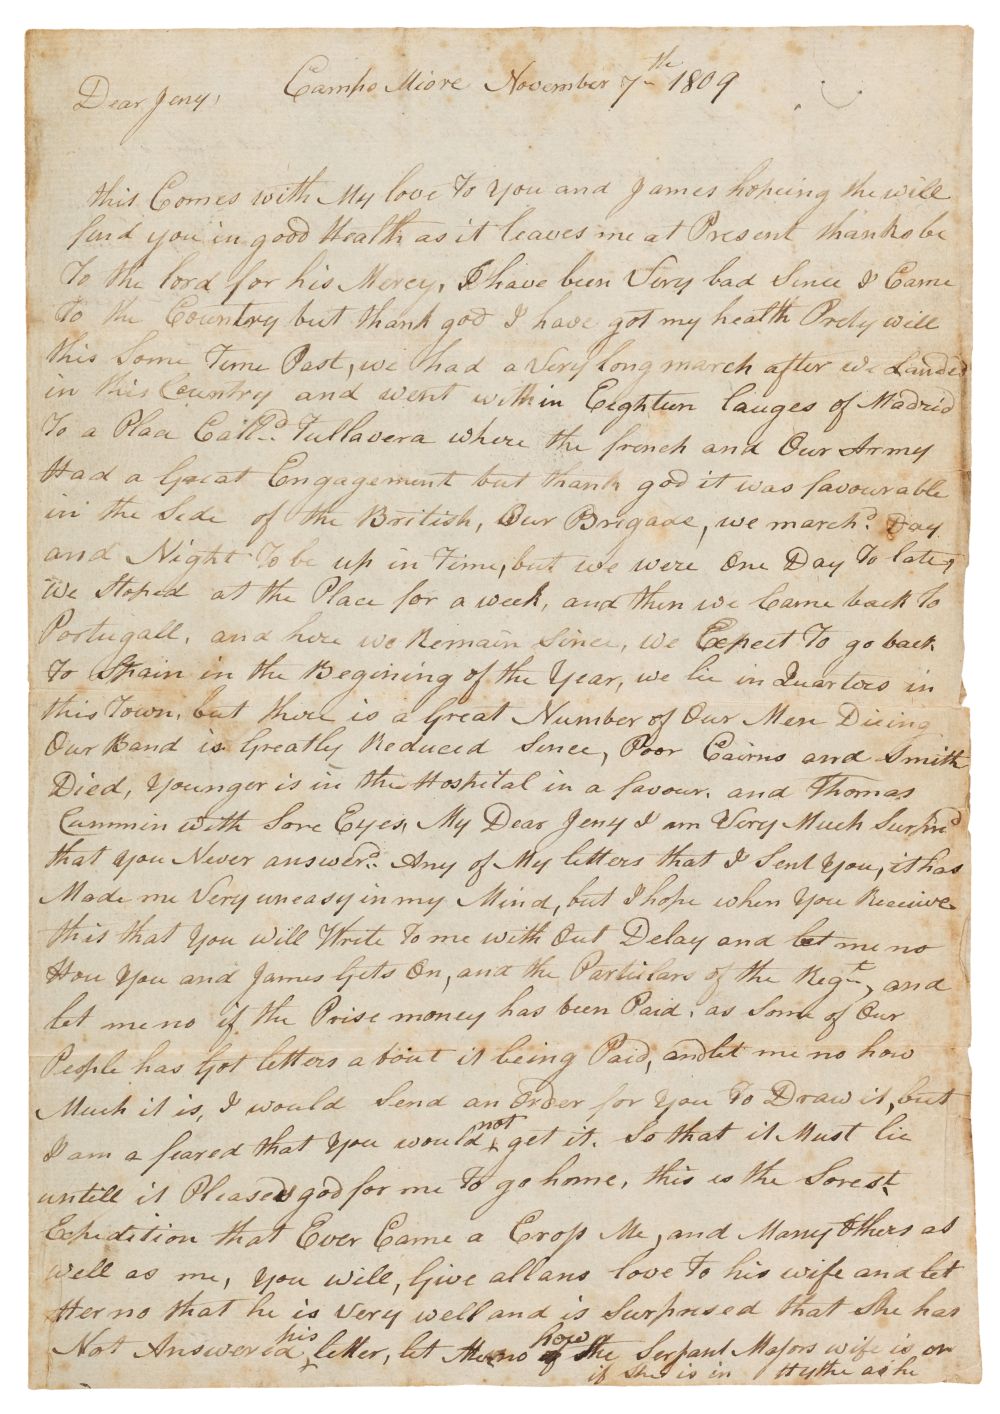 Campo Miore November 7th 1809
Dear Jeny,
this Comes with My love To You and James hopeing the will
find you in good Health as it leaves me at Present thanks be
To the lord for his Mercy, I have been Very bad Since I Came
To the Country but thank god I have got my health Prety will
this Some Time Past, we had a Very long march after we Landed
in this Country and went within Eighteen leauges of Madrid
To a Place Call.d Tullavera where the french and Our Army
Had a Great Engagement but thank god it was favourable
in the Side of the British, Our Brigade, we march.d Day
and Night To be up in Time, but we were One Day To late,
We Stoped at the Place for a week, and then we Came back To
Portugall, and here we Remain Since, We Expect To go back
To Spain in the Begining of the Year, we lie in Quarters in
this Town, but there is a Great Number of Our Men Dieing
Our Band is Greatly Reduced Since, Poor Cairns and Smith
Died, Younger is in the Hospital in a favour. and Thomas
Cammin with Sore Eyes, My Dear Jeny I am Very Much Surpris'd
that You Never answer.d Any of My letters that I Sent You, it has
Made me Very uneasy in my Mind, but I hope when You Receive
this that You will Write To me with Out Delay and let me no
How You and James Gets On, and the Particlars of the Regt, and
let me no if the Prise money has been Paid, as Some of Our
People has Got letters about it being Paid, and let me no how
Much it is, I would Send an Order for You To Draw it, but
I am a feared that You would not get it. So that it Must lie
untill it Pleases god for me To go home, this is the Sorest
Expedition that Ever Came a Cross Me, and Many Others as
well as me, You will, Give allans love To his wife and let
Her no that he is Very well and is Surprised that She has
Not Answered his letter, let Me no how the Serjant Majors wife is or
if she is in Hythe as he